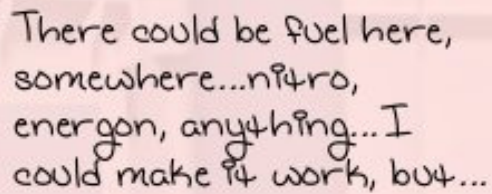 There could be fuel here,
somewhere...nitro,
energon, anything...I
could make it work, but...